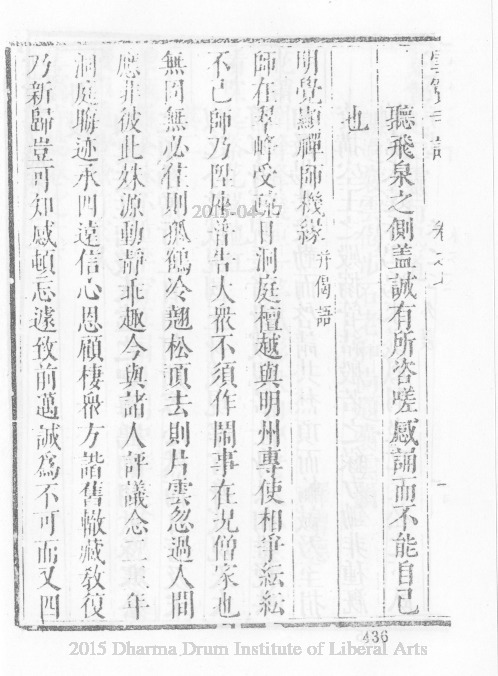 聽飛泉之側盖誠有所咨嗟感誦而不能自已
也
明覺顯禪師機緣并偈語
師在翠峰受疏日洞庭檀越與明州專使相爭紜紜
不已師乃陞座普告大衆不須作鬧事在況僧家也
無固無必住則孤鶴冷翹松頂去則片雲忽過人間
應非彼此殊源動靜乖趣今與諸人評議念年
洞庭晦迹承四遠信心恩顧棲衆方諧舊轍藏教復
乃新歸豈可知感頓忘遽致前邁誠為不可而又四
436
2015-04-17
2015 Dharma Drum Institute of Liberal Arts